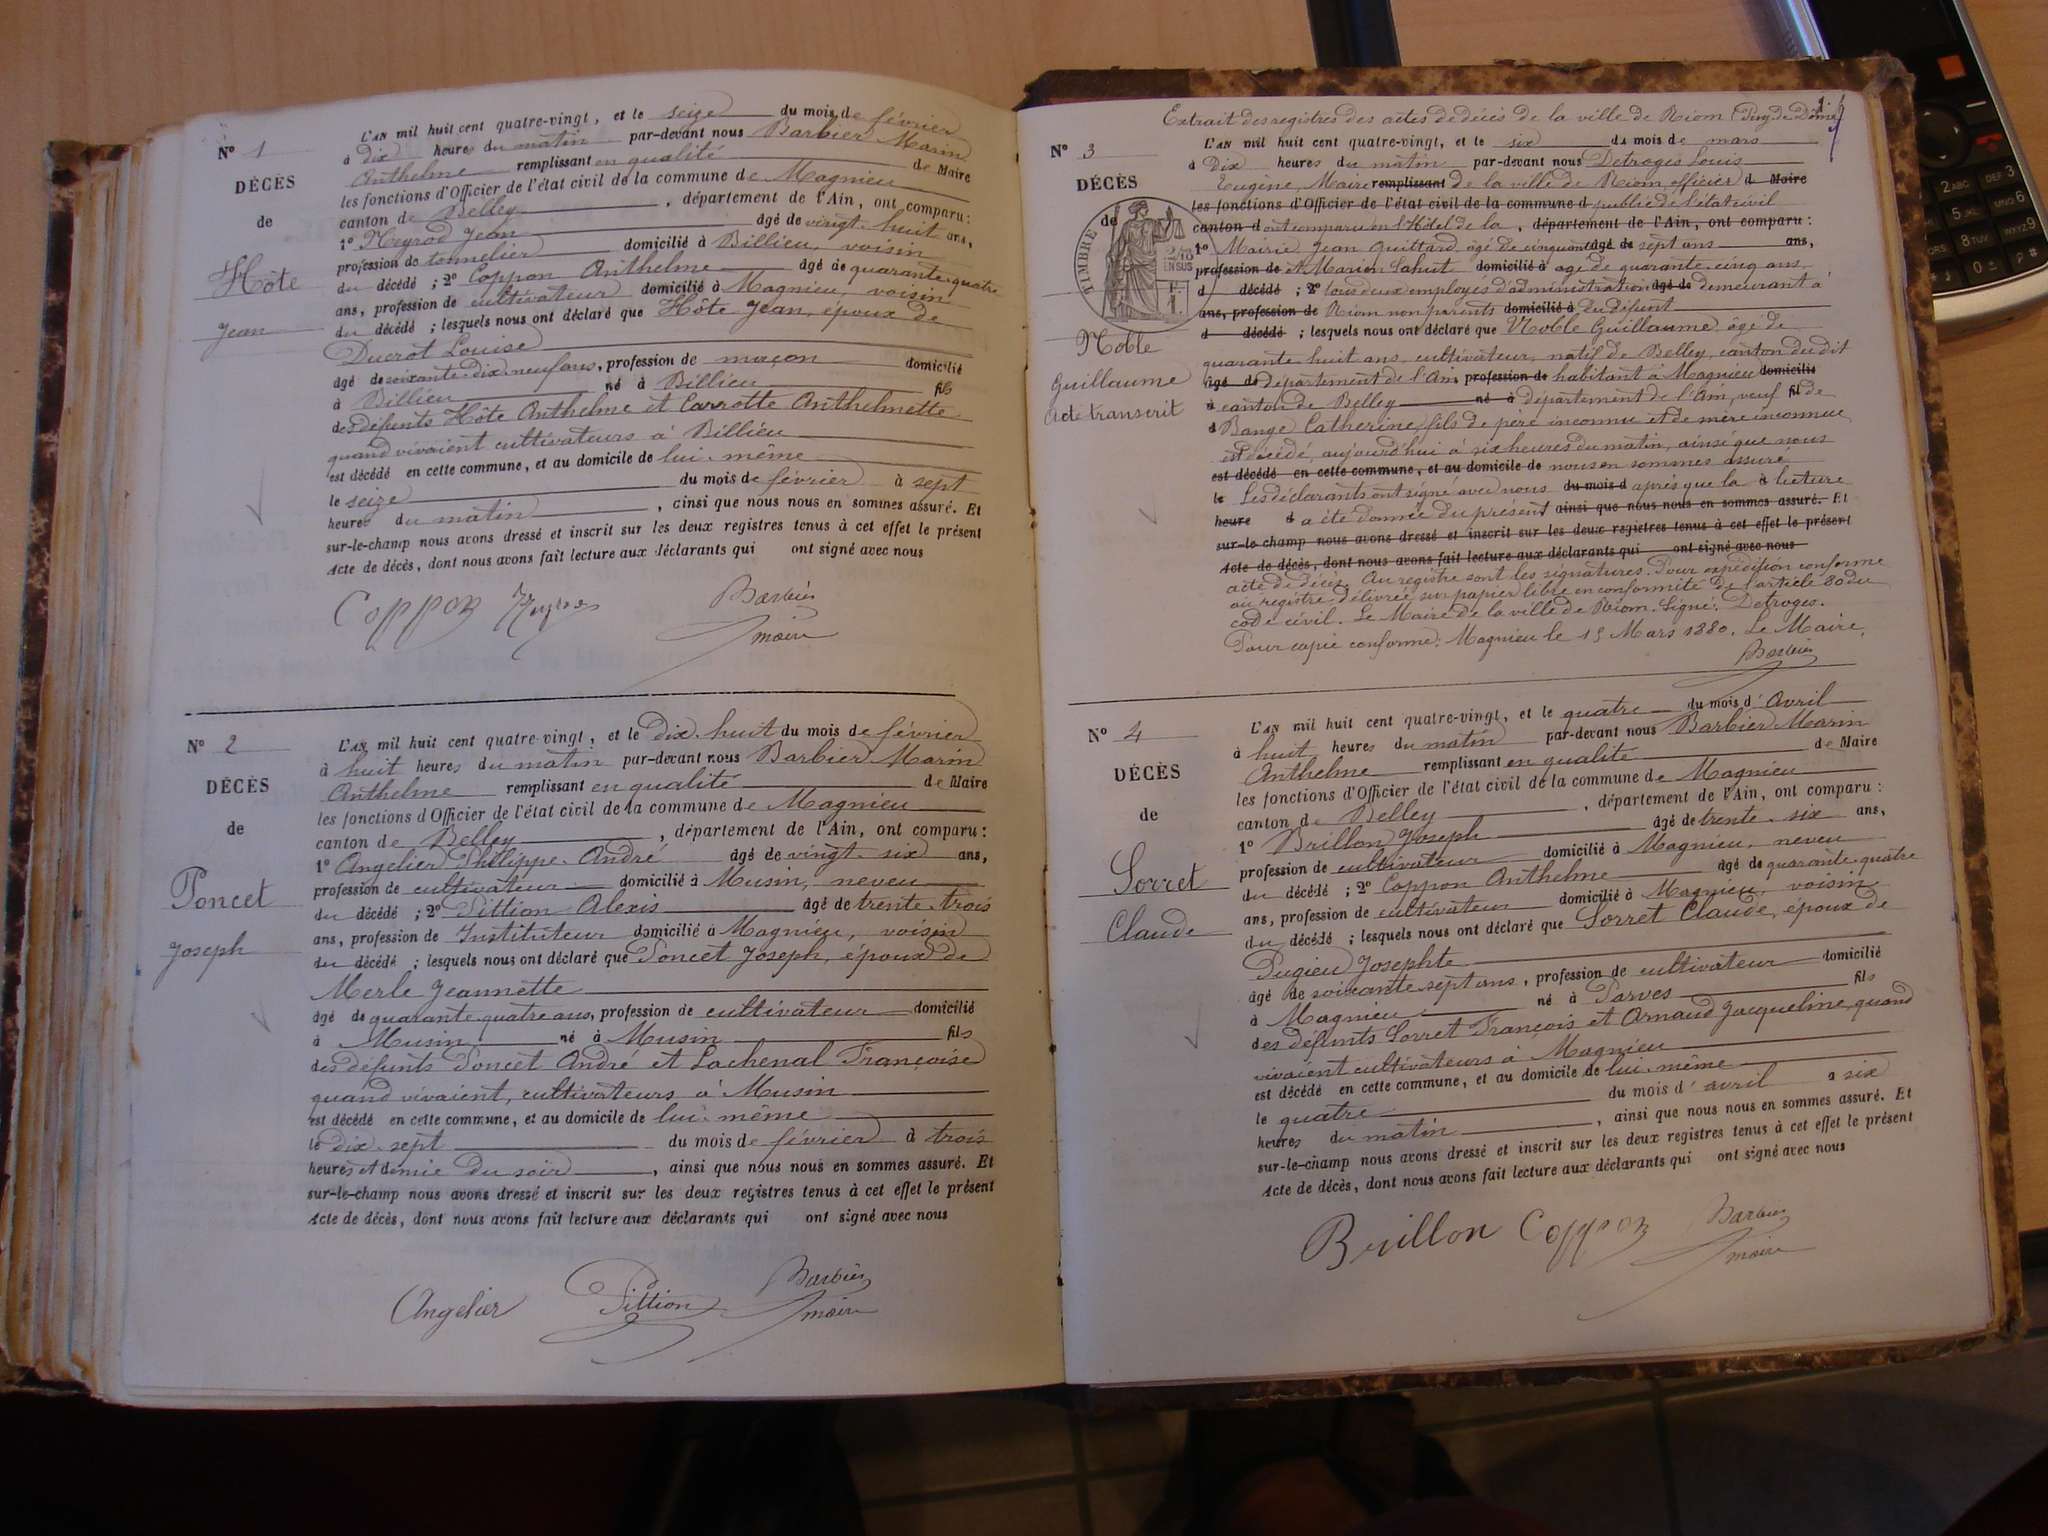 Nº 1
DÉCÈS
de
Hôte
Jean
L'AN mil huit cent quatre-vingt, et le seize du mois de février
à dix heures du matin par-devant nous Barbier Marin
Anthelme remplissant en qualité de Maire
les fonctions d'Officier de l'état civil de la commune de Magnieu
canton de Belley, département de l'Ain, ont comparu :
1º Jean âgé de vingt-huit ans,
profession de tonnelier domicilié à Billieu, voisin
du décédé ; 2º Coppon Anthelme âgé de quarante-quatre
ans, profession de cultivateur domicilié à Magnieu, voisin
du décédé ; lesquels nous ont déclaré que Hôte Jean, époux de
Ducrot Louise
âgé de soixante-dix neuf ans, profession de maçon domicilié
à Billieu né à Billieu fils
des défunts Hôte Anthelme et Carrotte Anthelmette
quand vivaient cultivateurs à Billieu
est décédé en cette commune, et au domicile de lui-même
le seize du mois de février à sept
heures du matin, ainsi que nous nous en sommes assuré. Et
sur-le-champ nous avons dressé et inscrit sur les deux registres tenus à cet effet le présent
Acte de décès, dont nous avons fait lecture aux déclarants qui ont signé avec nous
Coppon Barbier
maire
Nº 2
DÉCÈS
de
Poncet
Joseph
L'AN mil huit cent quatre-vingt, et le dix-huit du mois de février
à huit heures du matin par-devant nous Barbier Marin
Anthelme remplissant en qualité de Maire
les fonctions d'Officier de l'état civil de la commune de Magnieu
canton de Belley, département de l'Ain, ont comparu :
1º Angelier Philippe-André âgé de vingt-six ans,
profession de cultivateur domicilié à Musin, neveu
du décédé ; 2º Pittion Alexis âgé de trente-trois
ans, profession de Instituteur domicilié à Magnieu, voisin
du décédé ; lesquels nous ont déclaré que Poncet Joseph, époux de
Merle Jeannette
âgé de quarante-quatre ans, profession de cultivateur domicilié
à Musin né à Musin fils
des défunts Poncet André et Lachenal Françoise
quand vivaient, cultivateurs à Musin
est décédé en cette commune, et au domicile de lui-même
le dix-sept du mois de février à trois
heures et demie du soir, ainsi que nous nous en sommes assuré. Et
sur-le-champ nous avons dressé et inscrit sur les deux registres tenus à cet effet le présent
Acte de décès, dont nous avons fait lecture aux déclarants qui ont signé avec nous
Angelier Pittion Barbier
maire
Extrait des registres des actes de décès de la ville de Riom (Puy-de-Dôme)
Nº 3
DÉCÈS
de
TIMBRE
2/10
EN SUS
Noble
Guillaume
Acte transcrit
L'AN mil huit cent quatre-vingt, et le six du mois de mars
à dix heures du matin par-devant nous Detroges Louis
Eugène, Maire remplissant de la ville de Riom, officier d Maire
les fonctions d'Officier de l'état civil de la commune d public de l'état civil
canton d ont comparu en l'Hôtel de la, département de l'Ain, ont comparu :
1º Mairie Jean Guittard âgé de cinquante âgé de sept ans ans,
profession de et Marien Sahut domicilié à âgé de quarante-cinq ans
d décédé ; 2º tous deux employés d'administration âgé de demeurant à
ans, profession de Riom non parents domicilié à du défunt
d décédé ; lesquels nous ont déclaré que Noble Guillaume âgé de
quarante-huit ans, cultivateur, natif de Belley, canton du dit
âgé de département de l'Ain profession de habitant à Magnieu domicilié
à canton de Belley né à département de l'Ain, veuf fil de
d Bange Catherine, fils de père inconnu et de mère inconnue
est décédé, aujourd'hui à six heures du matin, ainsi que nous
est décédé en cette commune, et au domicile de nous en sommes assuré
le Les déclarants ont signé avec nous du mois d après que la à lecture
heure d a été donnée du présent ainsi que nous nous en sommes assuré. Et
sur-le-champ nous avons dressé et inscrit sur les deux registres tenus à cet effet le présent
Acte de décès, dont nous avons fait lecture aux déclarants qui ont signé avec nous
acte de décès. Au registre sont les signatures. Pour expédition conforme
au registre délivrée sur papier libre en conformité de l'article 80 du
code civil. Le Maire de la ville de Riom. Signé : Detroges.
Pour copie conforme : Magnieu le 15 Mars 1880. Le Maire,
Barbier
Nº 4
DÉCÈS
de
Sorret
Claude
L'AN mil huit cent quatre-vingt, et le quatre du mois d'Avril
à huit heures du matin par-devant nous Barbier Marin
Anthelme remplissant en qualité de Maire
les fonctions d'Officier de l'état civil de la commune de Magnieu
canton de Belley, département de l'Ain, ont comparu :
1º Brillon Joseph âgé de trente-six ans,
profession de cultivateur domicilié à Magnieu, neveu
du décédé ; 2º Coppon Anthelme âgé de quarante-quatre
ans, profession de cultivateur domicilié à Magnieu, voisin
du décédé ; lesquels nous ont déclaré que Sorret Claude, époux de
Pugieu Josephte
âgé de soixante-sept ans, profession de cultivateur domicilié
à Magnieu né à Parves fils
des défunts Sorret François et Arnaud Jacqueline, quand
vivaient cultivateurs à Magnieu
est décédé en cette commune, et au domicile de lui-même
le quatre du mois d'avril à six
heures du matin, ainsi que nous nous en sommes assuré. Et
sur-le-champ nous avons dressé et inscrit sur les deux registres tenus à cet effet le présent
Acte de décès, dont nous avons fait lecture aux déclarants qui ont signé avec nous
Brillon Coppon Barbier
maire
2ABC
DEF3